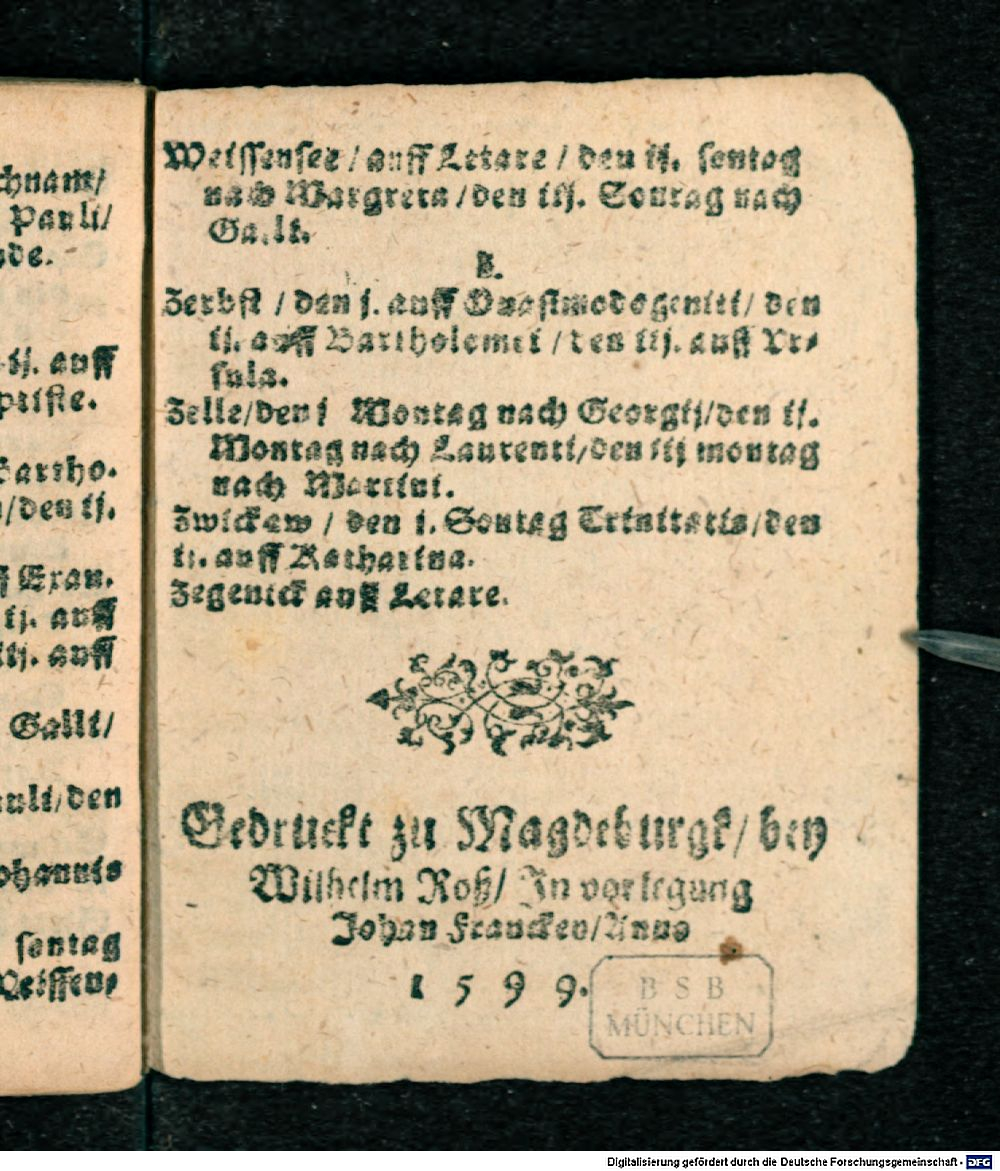 chnam/
Pauli/
nde.
ij. auff
ptiste.
Bartho-
/den ij.
ff Exau.
ij. auff
iij. auff
Galli/
auli/den
ohannis
sontag
Weissen-
Weissensee / auff Letare / den ij. sontag
nach Margreta / den iij. Sontag nach
Galli.
Z.
Zerbst / den j. auff Quasimodogeniti / den
ij. auff Bartholomei / den iij. auff Vr-
sula.
Zelle/den j Montag nach Georgij/den ij.
Montag nach Laurenti/den iij montag
nach Martini.
Zwickaw / den j. Sontag Trinitatis/den
ij. auff Katharina.
Zegenick auff Letare.
Gedruckt zu Magdeburgk/ bey
Wilhelm Roß/ In vorlegung
Johan Francken/Anno
1 5 9 9.
B S B
MÜNCHEN
Digitalisierung gefördert durch die Deutsche Forschungsgemeinschaft - DFG